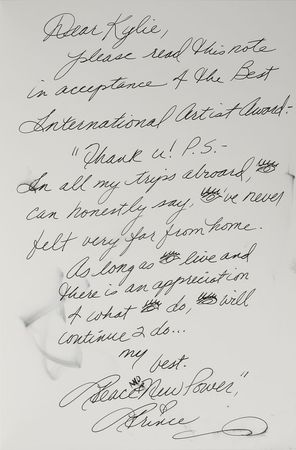 Dear Kylie,
please read this note
in acceptance 4 the Best
International Artist Award:-
"Thank U! P.S.-
In all my trips abroad,
can honestly say, 've never
felt very far from home.
As long as live and
there is an appreciation
4 what do, will
continue 2 do...
my best.
Peace New Power",
Prince